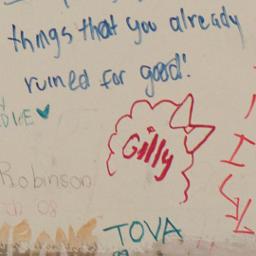 things that you already
ruined for good!
Gilly
Robinson
08
TOVA